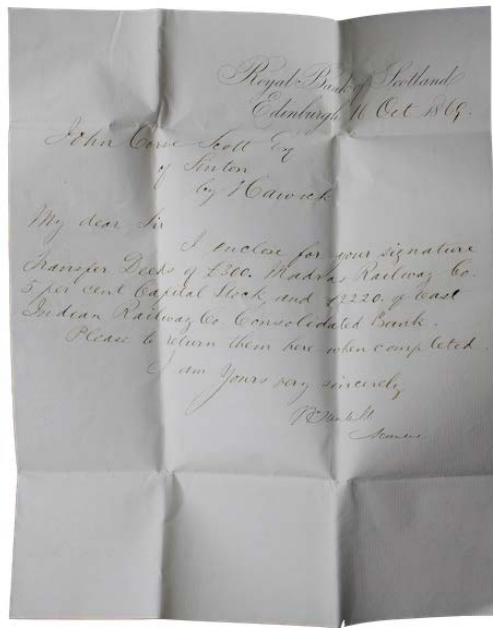 Royal Bank of Scotland
Edinburgh 16 Oct 1869.
John Corse Scott Esq
of Sinton
by Hawick
My dear Sir
I enclose for your signature
Transfer Deeds of £300. Madras Railway Co.
5 per cent Capital Stock, and £2220. of East
Indian Railway Co. Consolidated Bank.
Please to return them here when completed.
I am Yours very sincerely